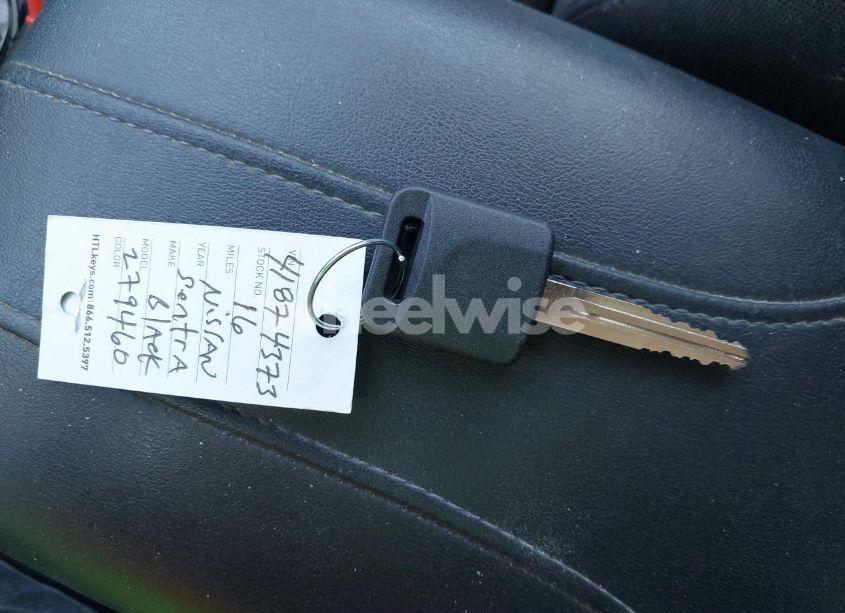 VIN
STOCK NO.
41874373
MILES
16
YEAR
NISSAN
MAKE
SentrA
MODEL
BlACK
COLOR
2779460
HTLkeys.com 866.512.5397
eelwise